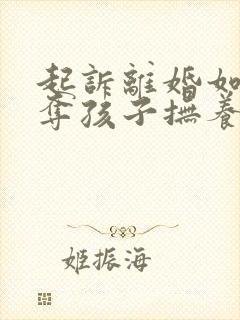 起訴離婚如
奪孩子撫養
姬振海